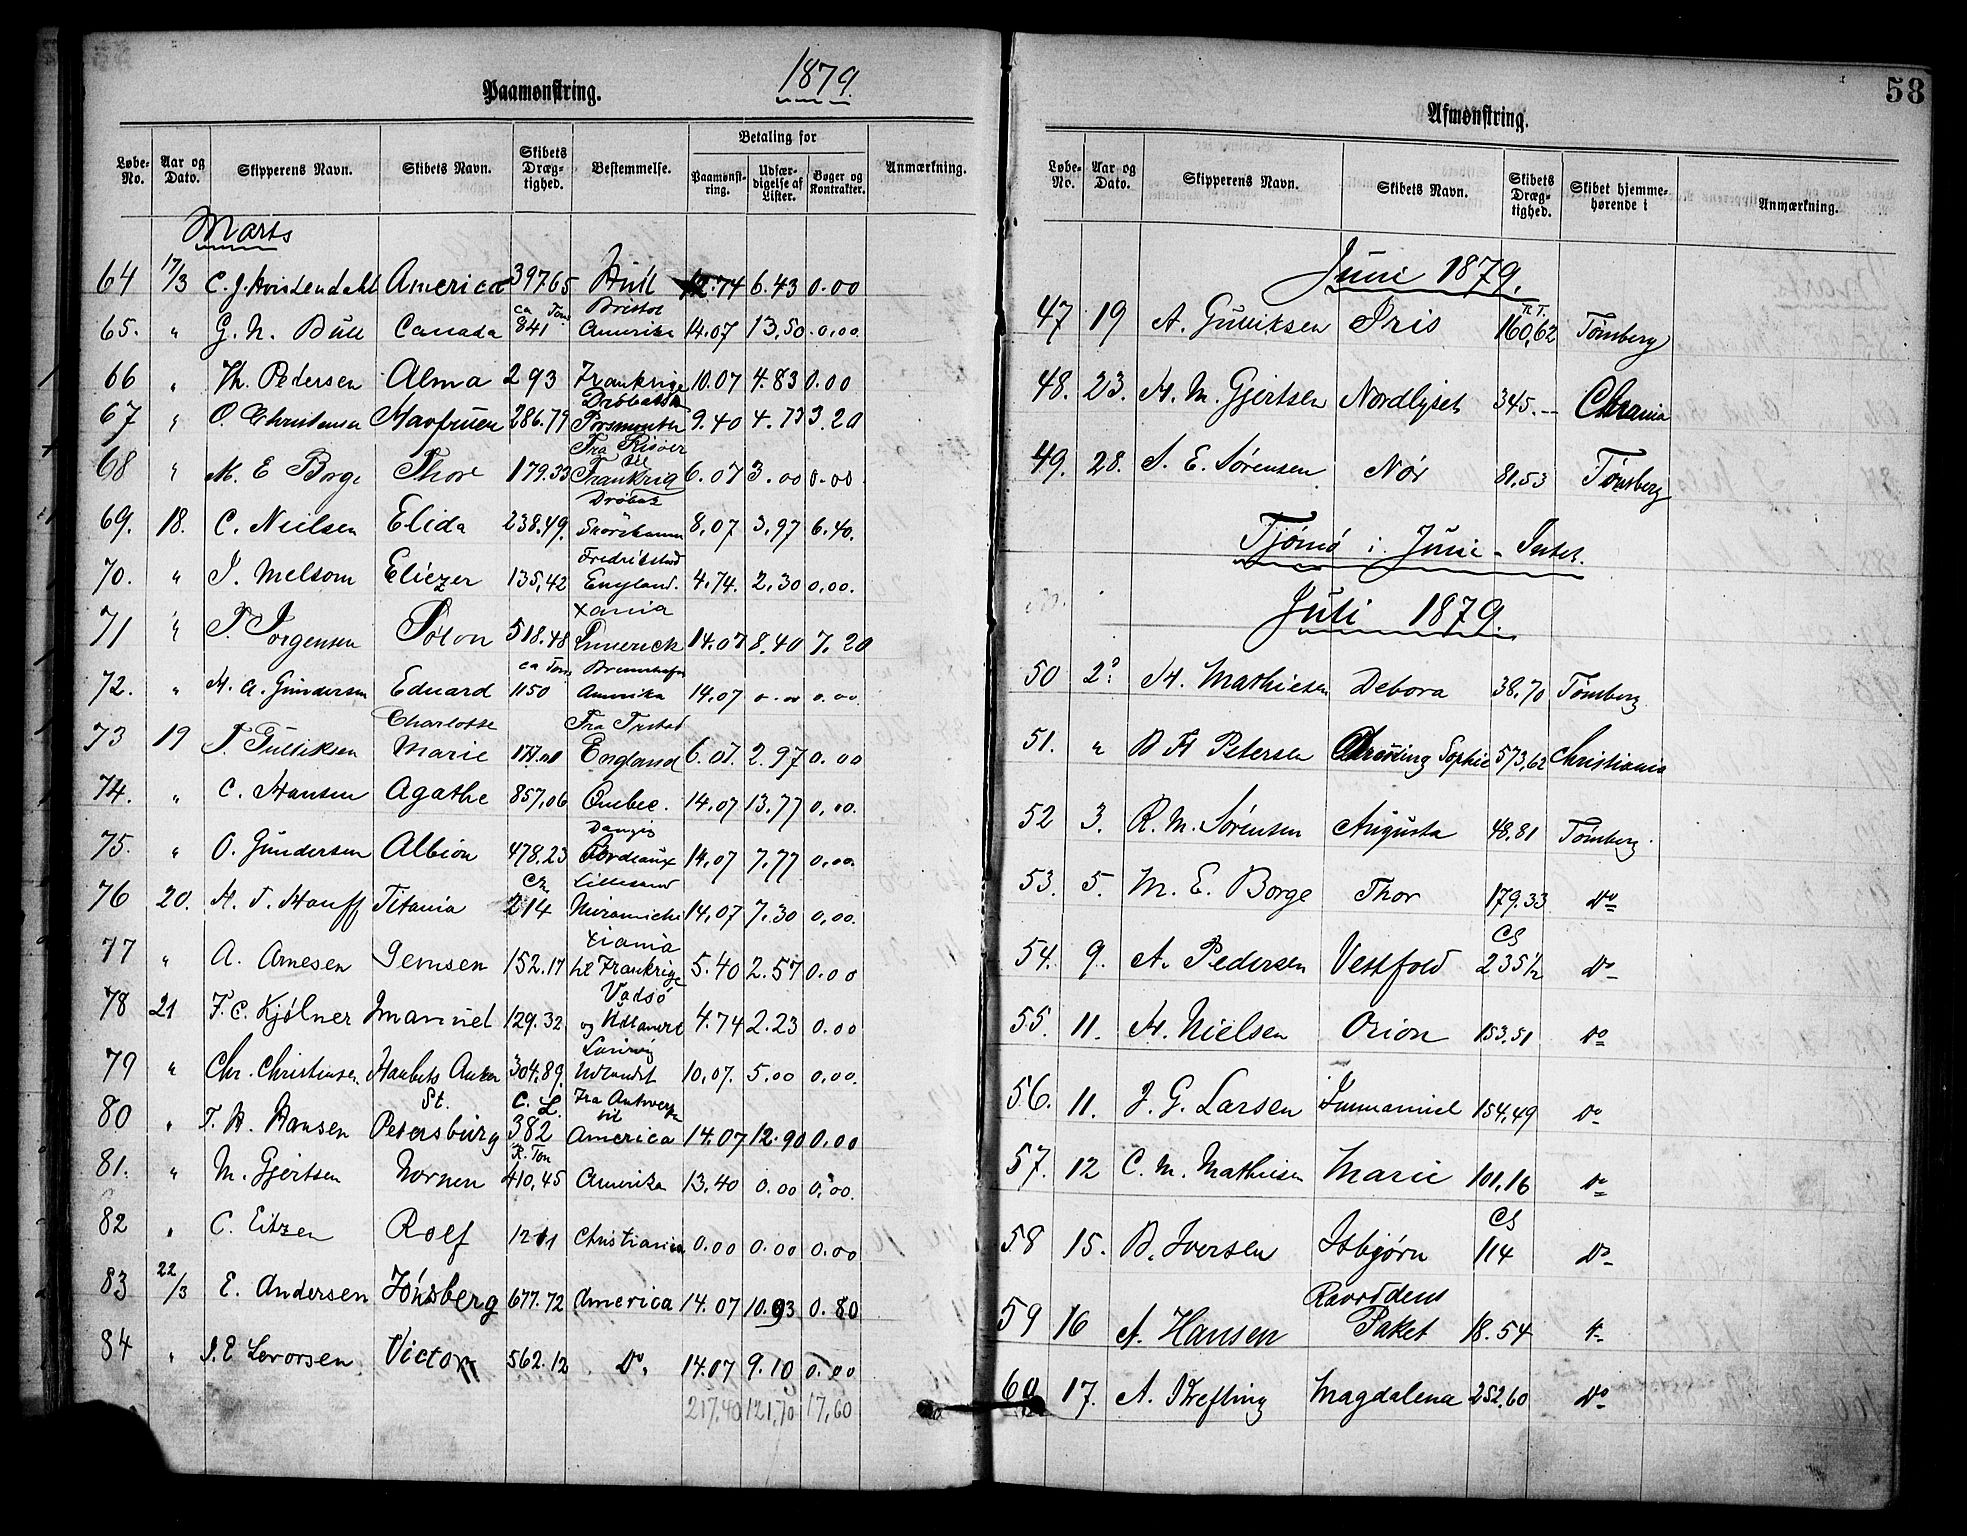 Paamønstring.
1879.
Løbe-No. Aar og Dato. Skipperens Navn. Skibets Navn. Skibets Dræg-tighed. Bestemmelse. Betaling for Paamønst-ring. Udfær-digelse af Lister. Bøger og Kontrakter. Anmærkning.
Marts
64 17/3 C. J. Hvistendahl America 397.65 Hull 12.74 6.43 0.00
ca Tons Bristol
65. " G. N. Bull Canada 841 Amerika 14.07 13,50 0.00
66 " Th. Pedersen Alma 293 Frankrige 10.07 4.83 0.00
67 " O Christensen Havfruen 286.79 9.40 4.73 3.20
Fra Risøer
til
68 " M. E Borge Thor 179.33 Frankrig 6.07 3.00 0.00
Drøbak
69. 18. C. Nielsen Elida 238.49. 8.07 3.97 6.40.
Fredrikstad
70. " J. Melsom Eliezer 135,42 England. 4.74. 2.30 0.00.
Xania
71 " J. Jørgensen Solon 518.48 Limerick 14.07 8.40 7.20
ca Tons
72. " H. A. Gundersen Eduard 1150 Amerika 14.07 0.00 0.00
Charlotte
73 19 T. Tulliksen Marie England 6.07. 2.97 0.00
74. " C. Hansen Agathe 857,06 Quebec. 14.07 13.77 0.00.
Danzig
75. " O. Gundersen Albion 478.23 Bordeaux 14.07 7.77 0.00.
Lillesand
76 20. H. T. Hauff Titania 214 Miramichi 14.07 7.30 0,00.
Xiania
77 " A. Arnesen Gemsen 152.17 til Frankrige 5.40 2.57 0.00
Vadsø
78 21 F. C. Kjølner Imanuel 129.32 og Udlandet 4.74 2.23 0.00
Laurvig
79 " Chr. Christensen Haabets Anker 304.89. Udlandet 10,07. 5.00 0,00.
St. C. L. Fra Antwerpen
til
80 " T. H. Hansen Petersburg 382 America 14.07 12.90 0.00
R. Ton
81. " M. Gjertsen Nornen 410,45 Amerika 13,40 0.00 0.00.
82 " C. Eitzen Rolf 1211 Christiania 0.00 0.00 0.00
83 22/3 E. Andersen Tønsberg 677.72 America 14.07 10.03 0.80
84 " J. E Levorsen Victor 562.12 Do. 14.07 9.10 0.00
217,40 121,70 17,60
58
Afmønstring.
Løbe-No. Aar og Dato. Skipperens Navn. Skibets Navn. Skibets Dræg-tighed. Skibet hjemme-hørende i Anmærkning.
Juni 1879.
R. T.
47 19 A. Gulliksen Iris 160,62 Tønsberg
48. 23. H. M. Gjertsen Nordlyset 345.-- Chrania
49. 28. S. E. Sørensen Nør 81,53 Tønsberg
Tjømø i Juni - Intet.
Juli 1879.
50 2. H. Mathiesen Debora 38,70 Tønsberg
51. " B H Petersen Dronning Sophie 573,62 Christiania
52 3. R. M. Sørensen Augusta 48,81 Tønsberg.
53. 5. M. E. Borge Thor 179.33 Do
Cl
54. 9. A. Pedersen Vestfold 235½ Do
55. 11. H. Nielsen Orion 153,51 Do
56. 11. J. G. Larsen Immanuel 154,49 Do
57. 12 C. M. Mathiesen Marie 101,16 Do
Cl
58 15. B. Iversen Isbjørn 114 Do
59 16 A. Hansen Paket 18.54
60 17. A. Krefting Magdalena 252,60 Do